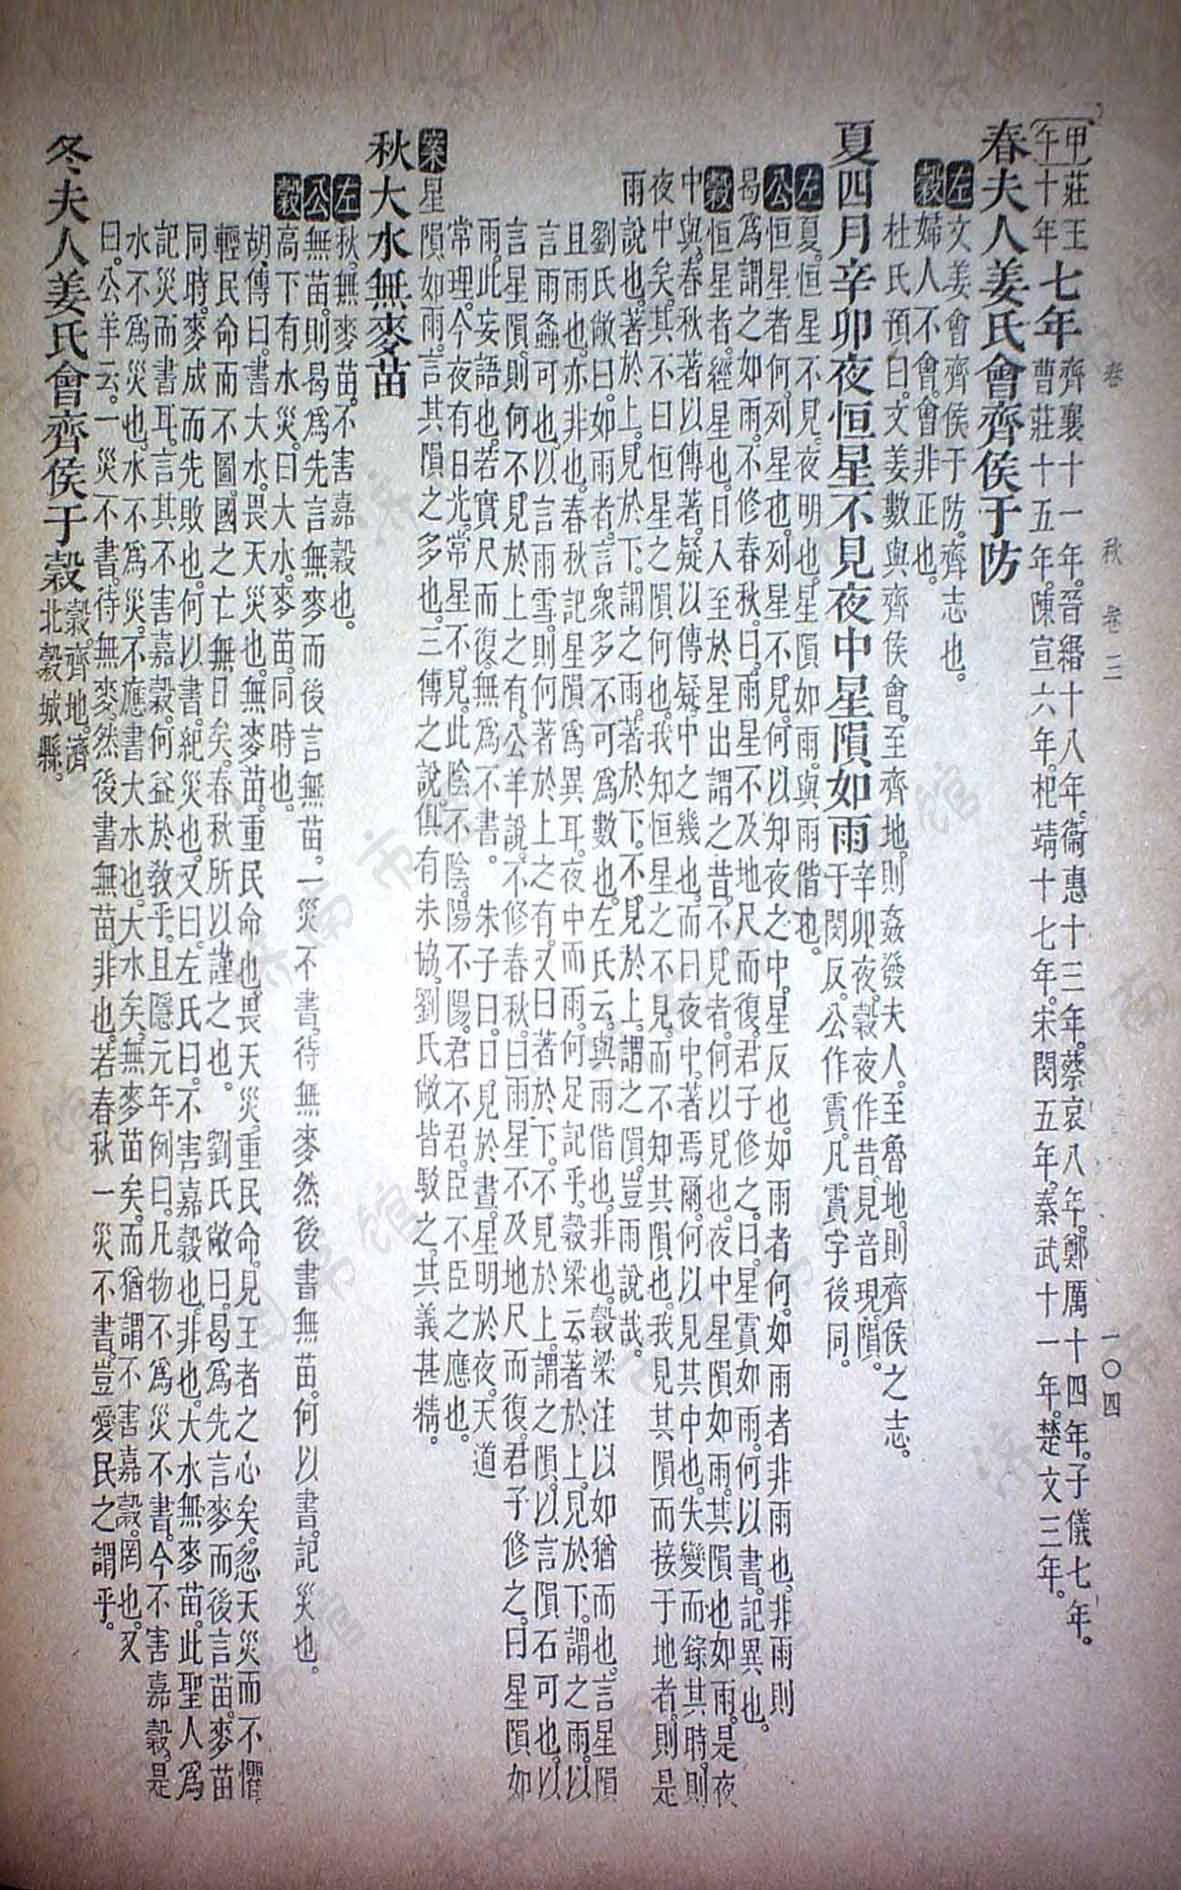 春秋 卷三 一〇四
甲午 莊王十年 七年 齊襄十一年。晉緡十八年。衞惠十三年。蔡哀八年。鄭厲十四年。子儀七年。
曹莊十五年。陳宣六年。杞靖十七年。宋閔五年。秦武十一年。楚文三年。
春夫人姜氏會齊侯于防
左 文姜會齊侯于防。齊志也。
穀 婦人不會。會非正也。
杜氏預曰。文姜數與齊侯會。至齊地。則姦發夫人。至魯地。則齊侯之志。
夏四月辛卯夜恒星不見夜中星隕如雨 辛卯夜。穀夜作昔。見音現。隕。于閔反。公作霣。凡霣字後同。
左 夏。恒星不見。夜明也。星隕如雨。與雨偕也。
公 恒星者何。列星也。列星不見。何以知夜之中。星反也。如雨者何。如雨者非雨也。非雨則
曷爲謂之如雨。不修春秋。曰。雨星不及地尺而復。君子修之。曰。星霣如雨。何以書。記異也。
穀 恒星者。經星也。日入至於星出。謂之昔。不見者。何以見也。夜中星隕如雨。其隕也如雨。是夜
中與。春秋著以傳著。疑以傳疑。中之幾也。而曰夜中。著焉爾。何以見其中也。失變而錄其時。則
夜中矣。其不曰恒星之隕何也。我知恒星之不見。而不知其隕也。我見其隕而接于地者。則是
雨說也。著於上。見於下。謂之雨。著於下。不見於上。謂之隕。豈雨說哉。
劉氏敞曰。如雨者。言衆多不可爲數也。左氏云。與雨偕也。非也。穀梁注以如猶而也。言星隕
且雨也。亦非也。春秋記星隕爲異耳。夜中而雨。何足記乎。穀梁云。著於上。見於下。謂之雨。以
言雨螽可也。以言雨雪。則何著於上之有。又曰著於下。不見於上。謂之隕。以言隕石可也。以
言星隕。則何不見於上之有。公羊說。不修春秋。曰雨星不及地尺而復。君子修之。曰星隕如
雨。此妄語也。若實尺而復。無爲不書。 朱子曰。日見於晝。星明於夜。天道
常理。今夜有日光。常星不見。此陰不陰。陽不陽。君不君。臣不臣之應也。
案 星隕如雨。言其隕之多也。三傳之說。俱有未協。劉氏敞皆駁之。其義甚精。
秋大水無麥苗
左 秋。無麥苗。不害嘉穀也。
公 無苗。則曷爲先言無麥而後言無苗。一災不書。待無麥然後書無苗。何以書。記災也。
穀 高下有水災。曰大水。麥苗。同時也。
胡傳曰。書大水。畏天災也。無麥苗。重民命也。畏天災。重民命。見王者之心矣。忽天災而不懼。
輕民命而不圖。國之亡無日矣。春秋所以謹之也。 劉氏敞曰。曷爲先言麥而後言苗。麥苗
同時。麥成而先敗也。何以書。紀災也。又曰。左氏曰。不害嘉穀也。非也。大水無麥苗。此聖人爲
記災而書耳。言其不害嘉穀。何益於敎乎。且隱元年例曰。凡物不爲災不書。今不害嘉穀。是
水不爲災也。水不爲災。不應書大水也。大水矣。無麥苗矣。而猶謂不害嘉穀。罔也。又
曰。公羊云。一災不書。待無麥。然後書無苗。非也。若春秋一災不書。豈愛民之謂乎。
冬夫人姜氏會齊侯于穀 穀。齊地。濟北穀城縣。